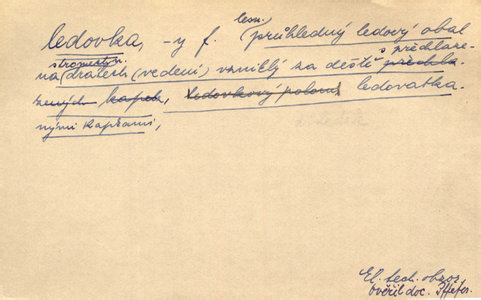 lesn.
ledovka, -y f. (průhledný ledový obal
stromech n.
na drátech (vedení) vzniklý za deště s předchlaze-
zených kapek, ledovkový poloma ledovatka.
nými kapkami,
El. tech. obzor
ověřil doc. Pfefer.